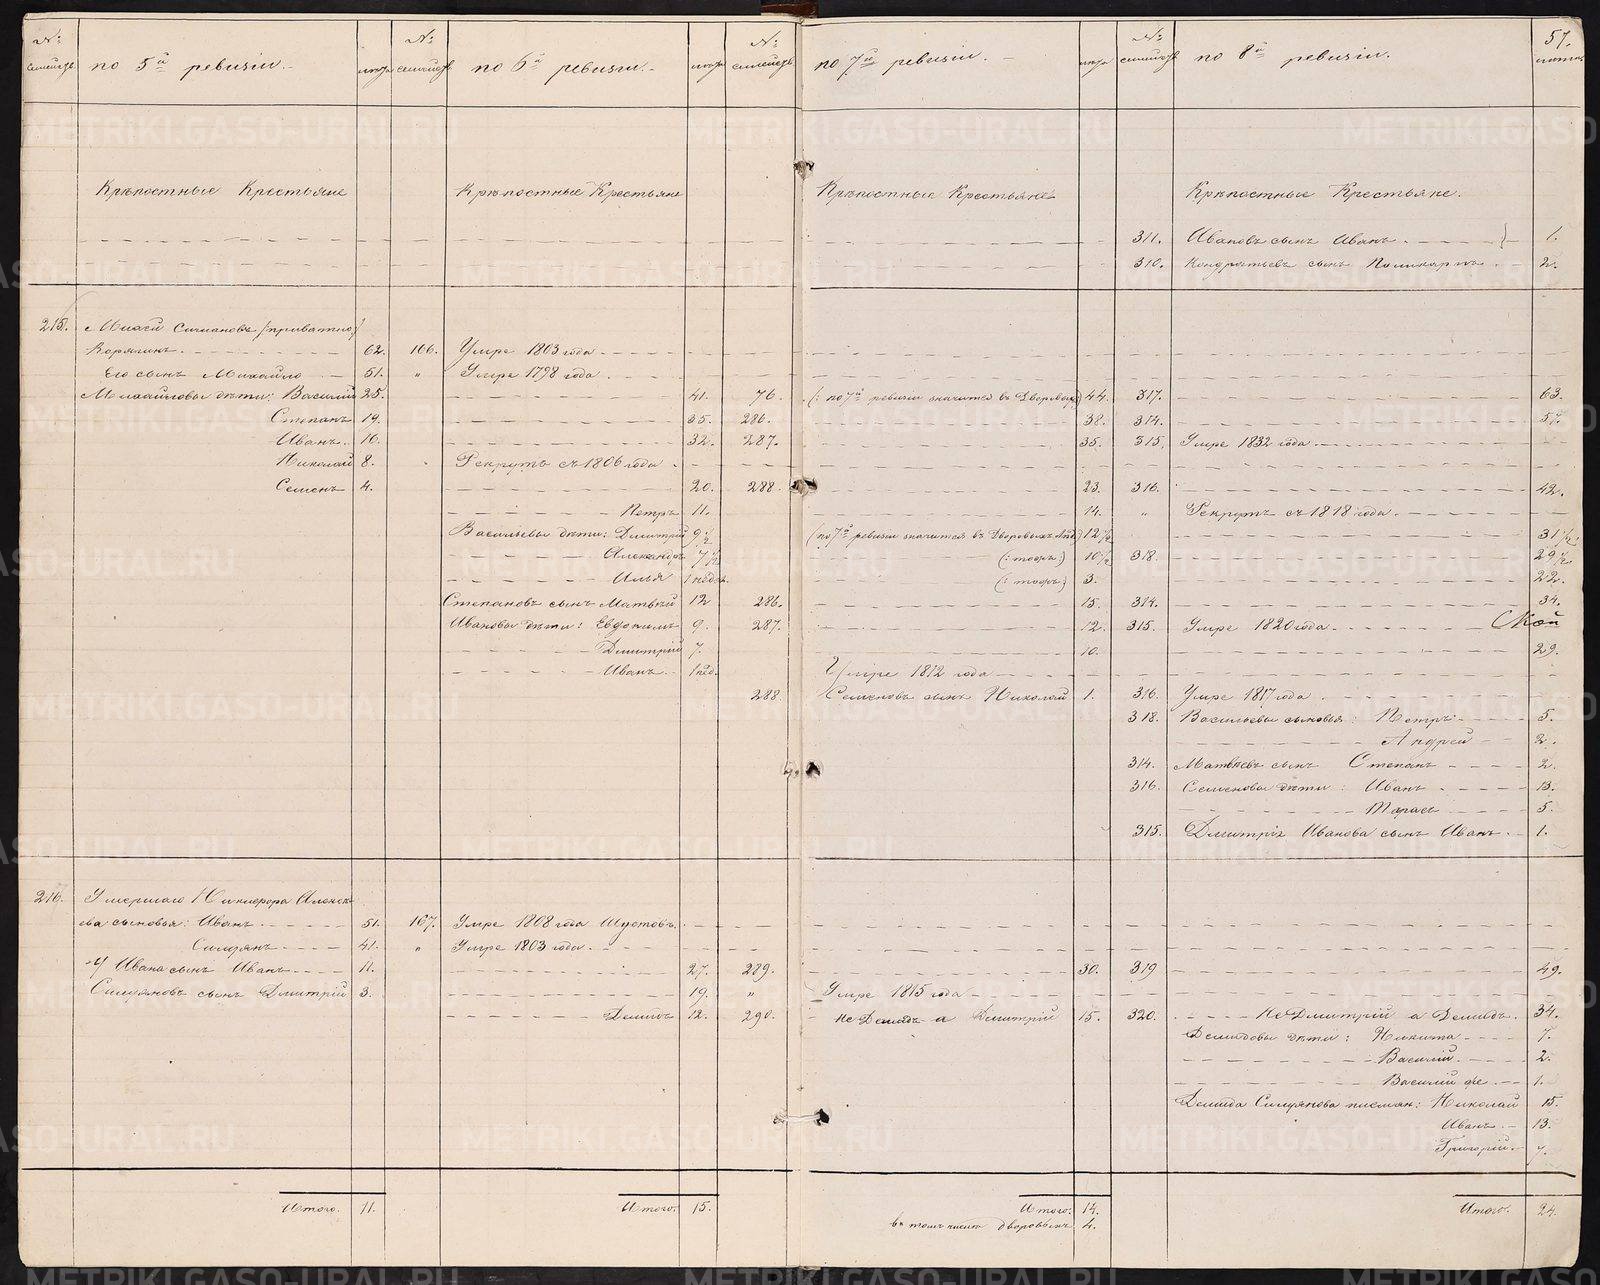 57.
№ семейств. по 5й ревизіи.- лѣта № семейств. по 6й ревизіи.- лѣта № семейств. по 7й ревизіи. - лѣта № семейств. по 8й ревизіи. лѣта
Крѣпостные Крестьяне Крѣпостные Крестьяне Крѣпостные Крестьяне Крѣпостные Крестьяне.
311. Ивановъ сынъ Иванъ. 1.
310. Кондратьевъ сынъ Поликарпъ 2.
215. Моисѣй Симановъ (приватно)
Корягинъ. 62. 166. Умре 1803 года
Его сынъ Михайло 51. " Умре 1798 года.
Михайловы дѣти: Василій 25. 41. 76. (: по 7й ревизіи значится въ Дворовыхъ) 44. 317. 63.
Степанъ 19. 35. 286. 38. 314. 57.
Иванъ. 16. 32. 287. 35. 315. Умре 1832 года.
Николай 8. Рекрутъ съ 1806 года
Семенъ 4. 20. 288. 23. 316. 42.
Петръ 11. 14. " Рекрутъ съ 1818 года.
Васильевы дѣти: Димитрій 9½ (по 7й ревизіи значится въ Дворовыхъ Люд:) 12½ 31½.
Александръ 7½ (: тожъ:) 10½ 318. 29½.
Илья 1 нед. (: тожъ:) 3. 22.
Степановъ сынъ Матвѣй 12 286. 15. 314. 34.
Ивановы дѣти: Евдокимъ 9. 287. 12. 315. Умре 1820 года.
Димитрій 7. 10. 29.
Иванъ 1 нед. Умре 1812 года
288. Семеновъ сынъ Николай 1. 316. Умре 1817 года
318. Васильевы сыновья: Петръ 5.
Андрей 2.
314. Матвѣевъ сынъ Степанъ 2.
316. Семеновы дѣти: Иванъ 13.
Тарасъ 5.
315. Дмитрія Иванова сынъ Иванъ 1.
216. Умершаго Никифора Алексѣ-
ева сыновья: Иванъ 51. 167. Умре 1808 года Шустовъ.
Симдянъ 41. " Умре 1803 года.
У Ивана сынъ Иванъ 11. 27. 289. 30. 319 49.
Симдяновъ сынъ Дмитрій 3. 19. " Умре 1815 года
Демидъ 12. 290. не Демидъ а Димитрій 15. 320. не Димитрій а Демидъ. 34.
Демидовы дѣти: Никита 7.
Василій. 2.
Василій же. 1.
Демида Симдянова пасынк: Николай 15.
Иванъ. 13.
Григорій. 7.
Итого. 11. Итого. 15. Итого. 14. Итого. 24.
въ томъ числѣ дворовыхъ 4.
METRIKI.GASO-URAL.RU